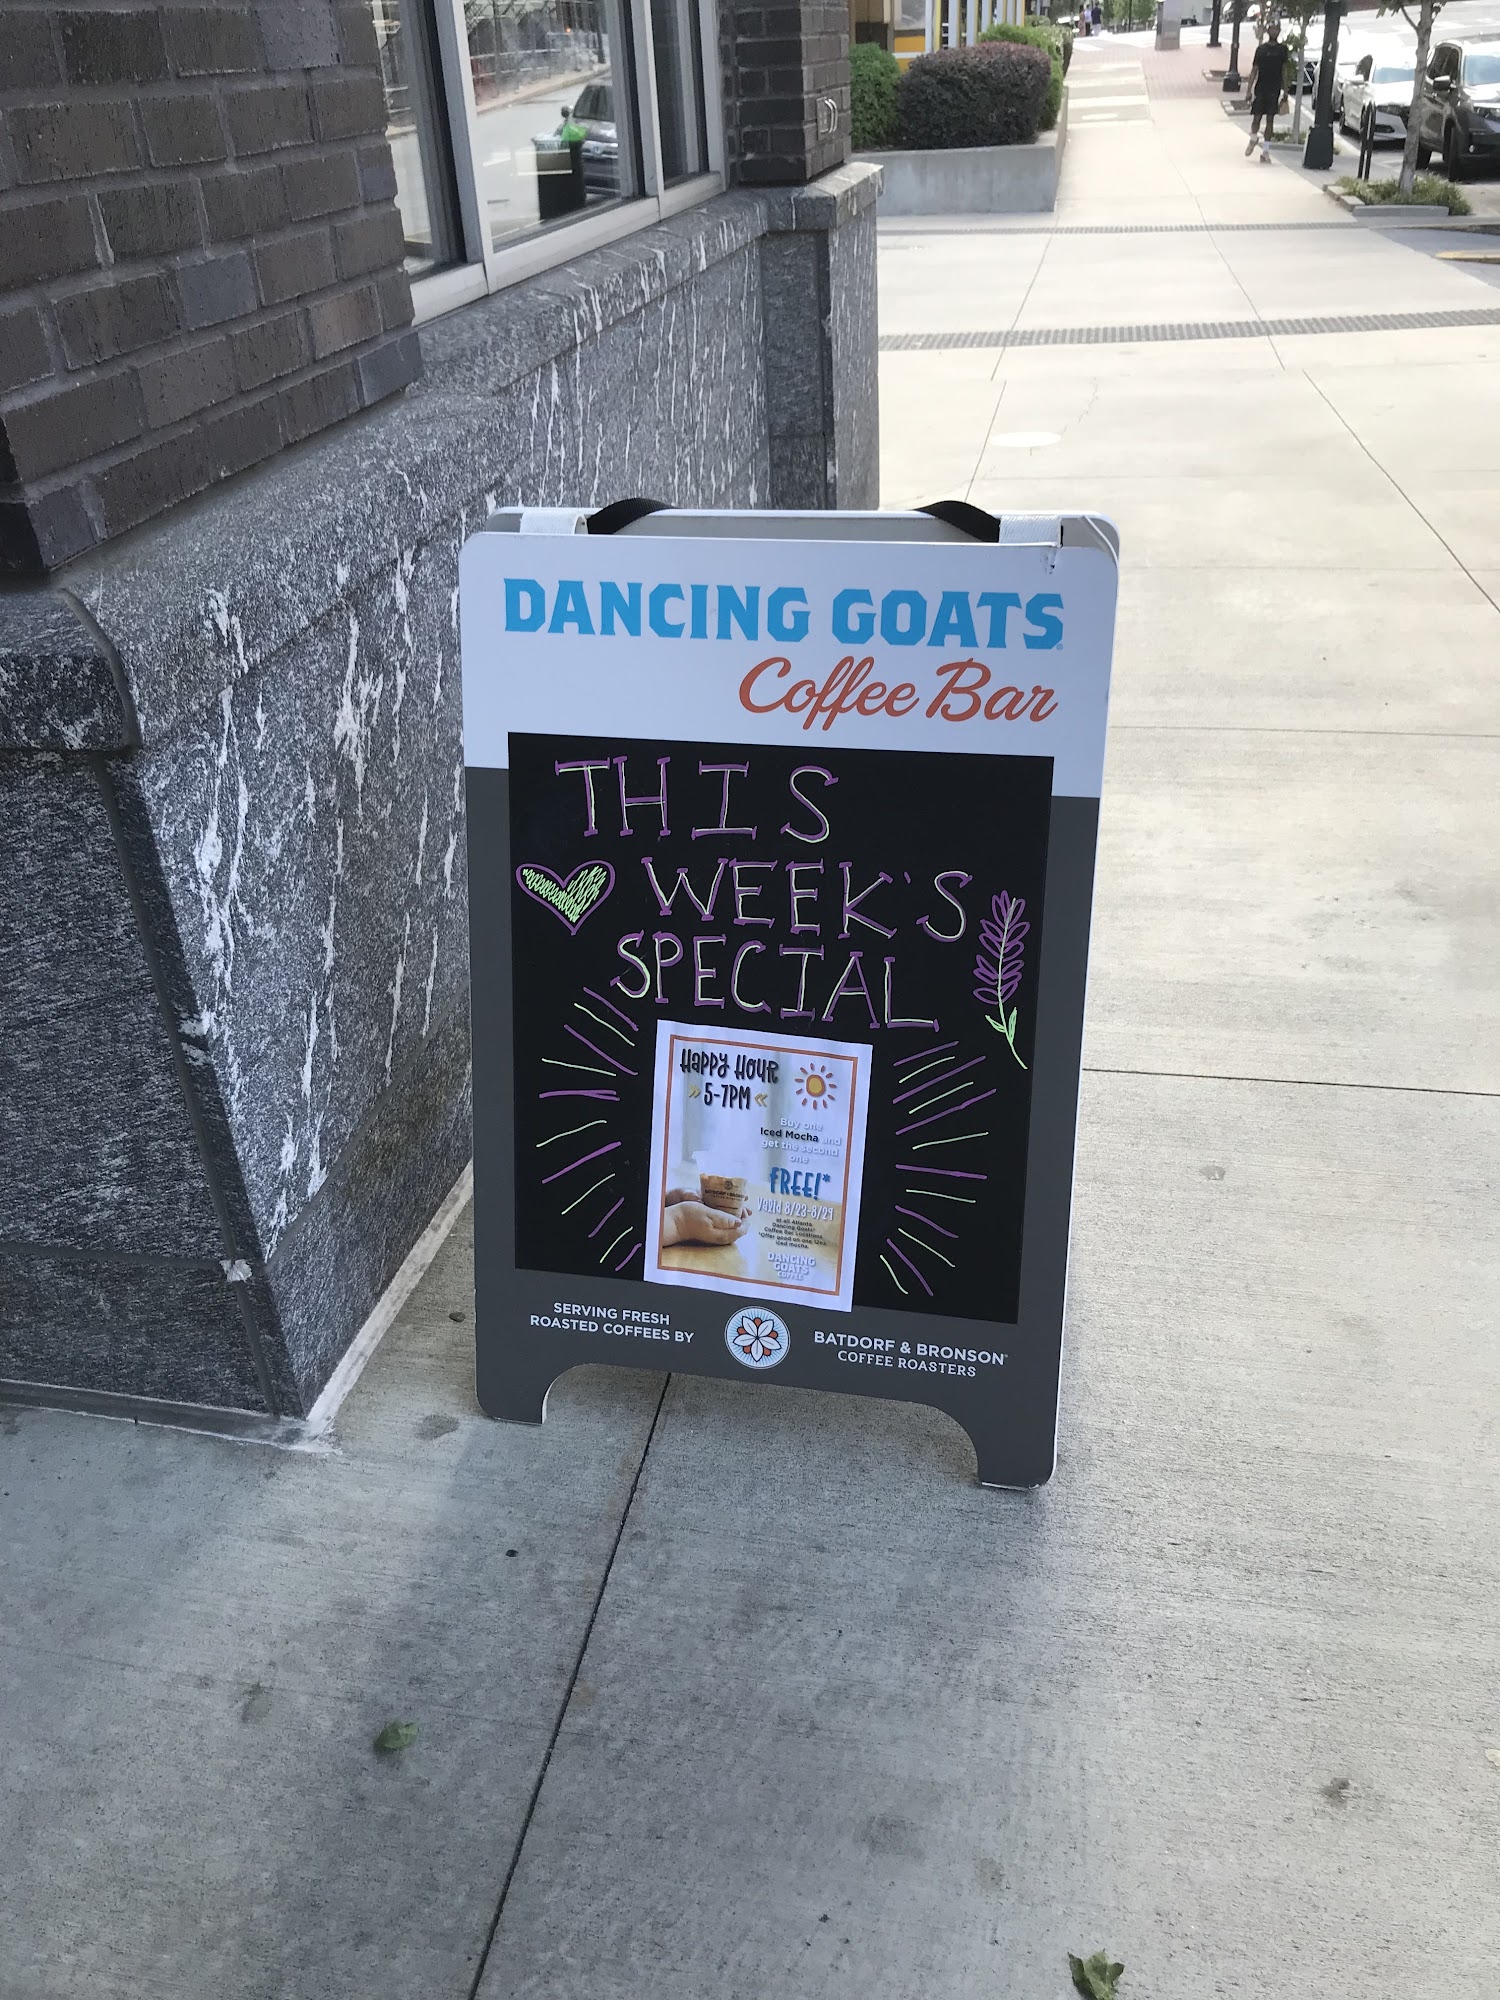 DANCING GOATS
Coffee Bar
THIS
WEEK'S
SPECIAL
HAPPY HOUR
» 5-7PM «
Buy one
Iced Mocha and
get the second
one
FREE!*
Valid 8/23-8/29
at all Atlanta
Dancing Goats®
Coffee Bar Locations
*Offer good on one 12oz.
iced mocha.
DANCING
GOATS
COFFEE
SERVING FRESH
ROASTED COFFEES BY
BATDORF & BRONSON
COFFEE ROASTERS